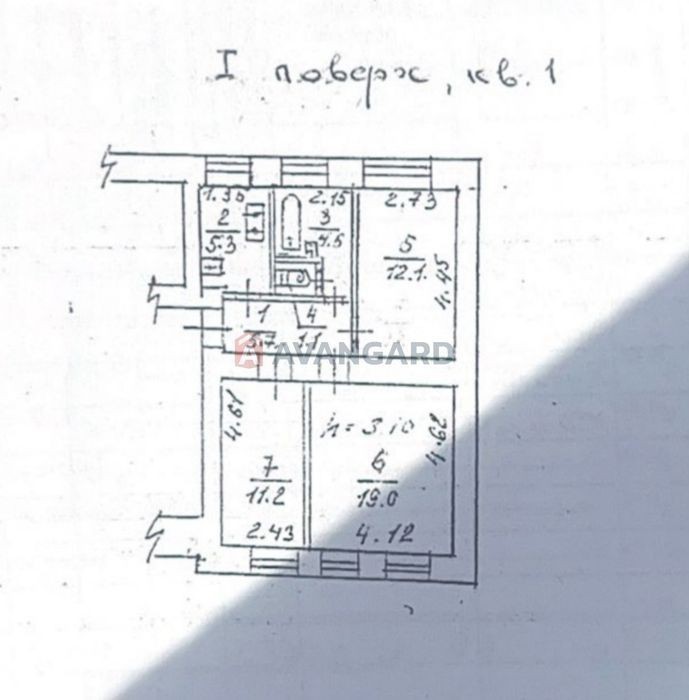 I поверх, кв. 1
1.35
2.15
2.73
2
5.3
3
4.6
5
12.1
4.45
1
5.7
4
1.1
AVANGARD
4.61
h = 3.10
4.62
7
11.2
6
19.0
2.43
4.12